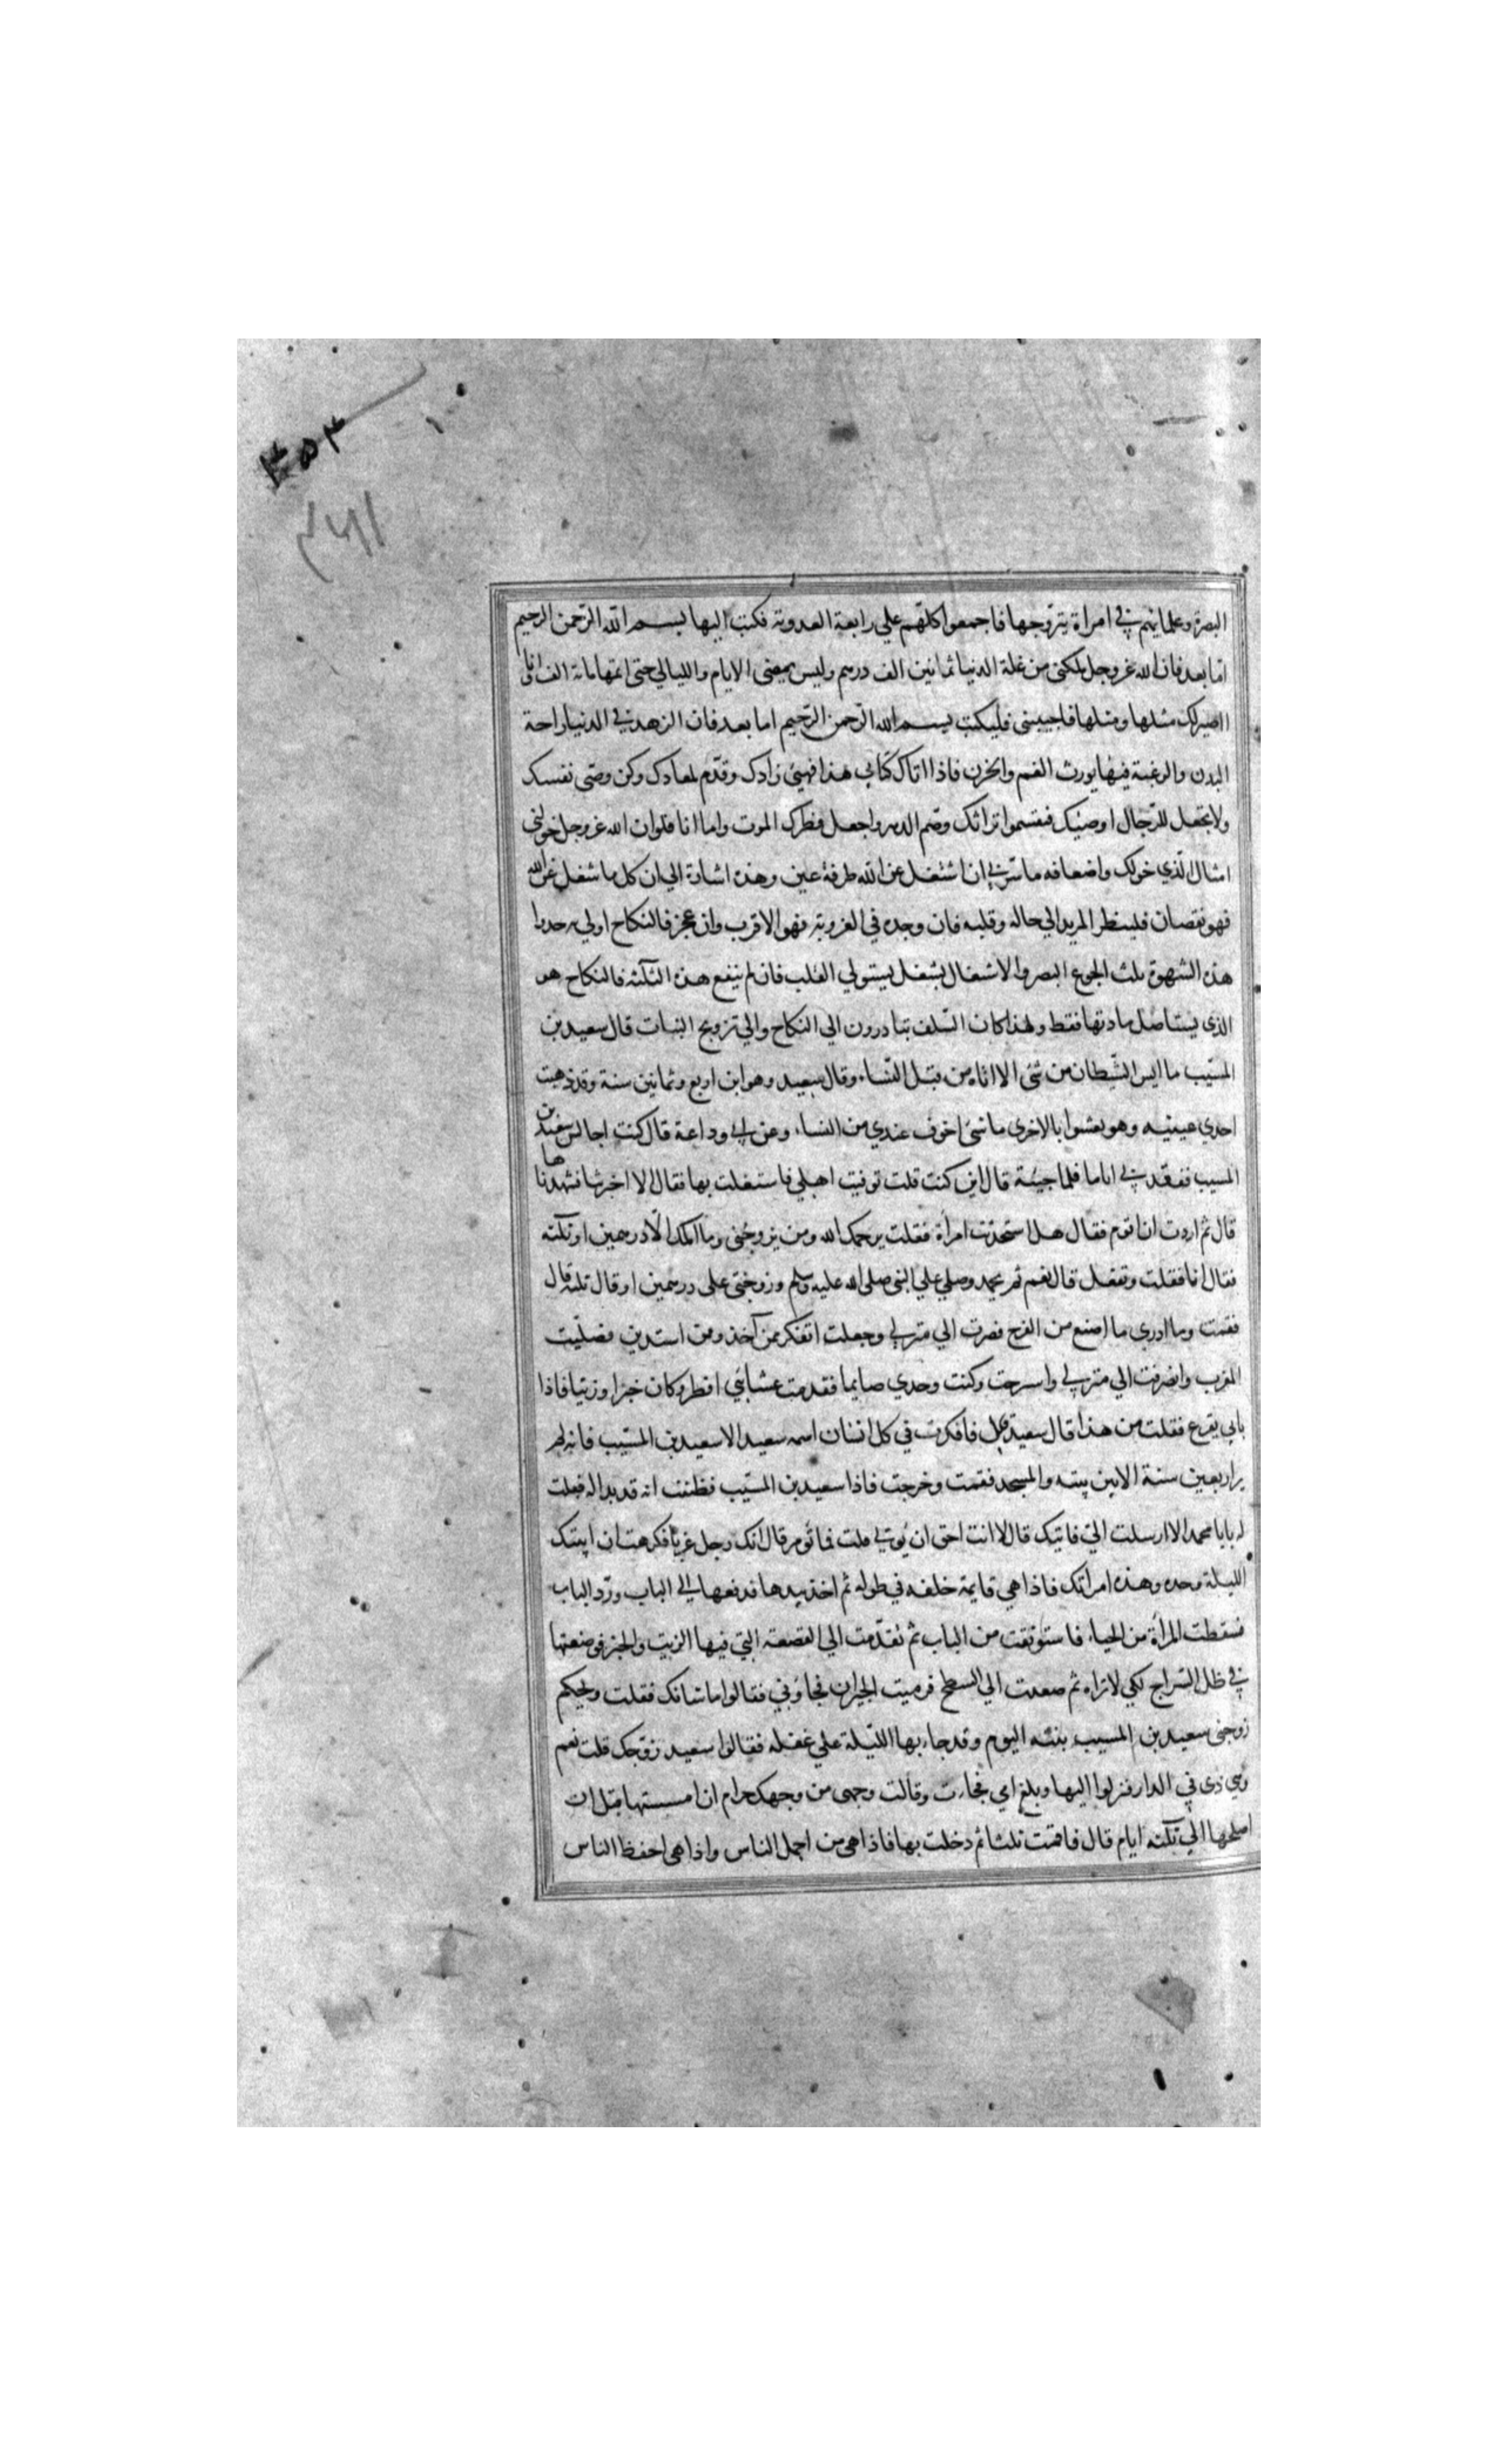 ٣٥٣
٣٤١
البصرة وعلمائهم في امراة يتزوجها فاجمعوا كلهم علي رابعة العدوية فكتب اليها بسم الله الرّحمن الرحيم
امّا بعد فان الله عز وجل ملكني من غلة الدنيا ثمانين الف درهم وليس يمضي الايام والليالي حتى اتمها مائة الف انا
اصير لك مثلها ومثلها فاجيبيني فليكتب بسم الله الرّحمن الرّحيم اما بعد فان الزهد في الدنيا راحة
البدن والرغبة فيها يورث الغم والحزن فاذا اتاك كتابي هذا فهيئ زادك وقدّم لمعادك وكن وصّى نفسك
ولا تجعل للرّجال اوصيك فيقسموا تراثك وصم الدهر واجعل فطرك الموت واما انا فلو ان الله عز وجل خولنى
امثال الّذي خولك واضعافه ما سرّني ان اشتغل عن الله طرفة عين وهذه اشارة الي ان كل ما شغل عن الله
فهو نقصان فلينظر المريد الي حاله وقلبه فان وجده في العزوبة فهو الاقرب وان عجز فالنكاح اولي به حدوا
هذه الشهوة بلث الجوع البصر والاشتغال بشغل يستولي القلب فان لم ينفع هذه الثلثة فالنكاح هو
الذي يستاصل مادتها فقط ولهذا كان السّلف يتبادرون الي النكاح والي تزويج البنات قال سعيد بن
المسّيب ما ايس الشّيطان من شئ الا اتاه من قبل النّساء وقال سعيد وهو ابن اربع وثمانين سنة وقد ذهبت
احدي عينيه وهو يعشوا بالاخرى ما شئ اخوف عندي من النساء وعن ابي وداعة قال كنت اجالس سعيد بن
المسيب ففقدني اياما فلما جيئة قال اين كنت قلت توفيت اهلي فاشتغلت بها فقال الا اخبرتنا فشهدناها
قال ثم اردت ان اقوم فقال هلا استحدثت امرأة فقلت يرحمك الله ومن يزوجني وما املك الّا درهمين او ثلثة
فقال انا فقلت وتفعل قال نعم ثم تحمد وصلي علي النبي صلى الله عليه وسلم وزوجني على درهمين او قال ثلثة قال
فقمت وما ادري ما اصنع من الفرح فصرت الي منزلي وجعلت اتفكر ممن آخذ وممن استدين فصلّيت
المغرب وانصرفت الي منزلي واسرجت وكنت وحدي صايما فقدمت عشائي افطر وكان خبزا وزيتا فاذا
بابي يقرع فقلت من هذا قال سعيد قال فافكرت في كل انسان اسمه سعيد الا سعيد بن المسّيب فانه لم
ير اربعين سنة الا بين بيته والمسجد فقمت وخرجت فاذا سعيد بن المسّيب فظننت انه قد بدا له فقلت
له يا با محمد الا ارسلت اليّ فاتيك قال لا انت احق ان يؤتي قلت فما تؤمر قال انك رجل عزبا فكرهت ان ابيتك
الليلة وحده وهذه امراتك فاذا هي قايمة خلفه في طوله ثم اخذ بيدها فدفعها الي الباب وردّ الباب
فسقطت المرأة من الحياء فاستوثقت من الباب ثم تقدّمت الي القصعة التي فيها الزيت والخبز فوضعتها
في ظل السّراج لكي لا تراه ثم صعدت الي السطح فرميت الجيران فجاؤني فقالوا ما شانك فقلت ويحكم
زوجني سعيد بن المسيب بنته اليوم وقد جاء بها اللّيلة علي غفلة فقالوا سعيد زوّجك قلت نعم
وهي ذي في الدار فنزلوا اليها وبلغ امي فجاءت وقالت وجهى من وجهك حرام ان امسستها قبل ان
اصلحها الي ثلثة ايام قال فاقمت ثلثا ثم دخلت بها فاذا هي من اجمل الناس واذا هي احفظ الناس